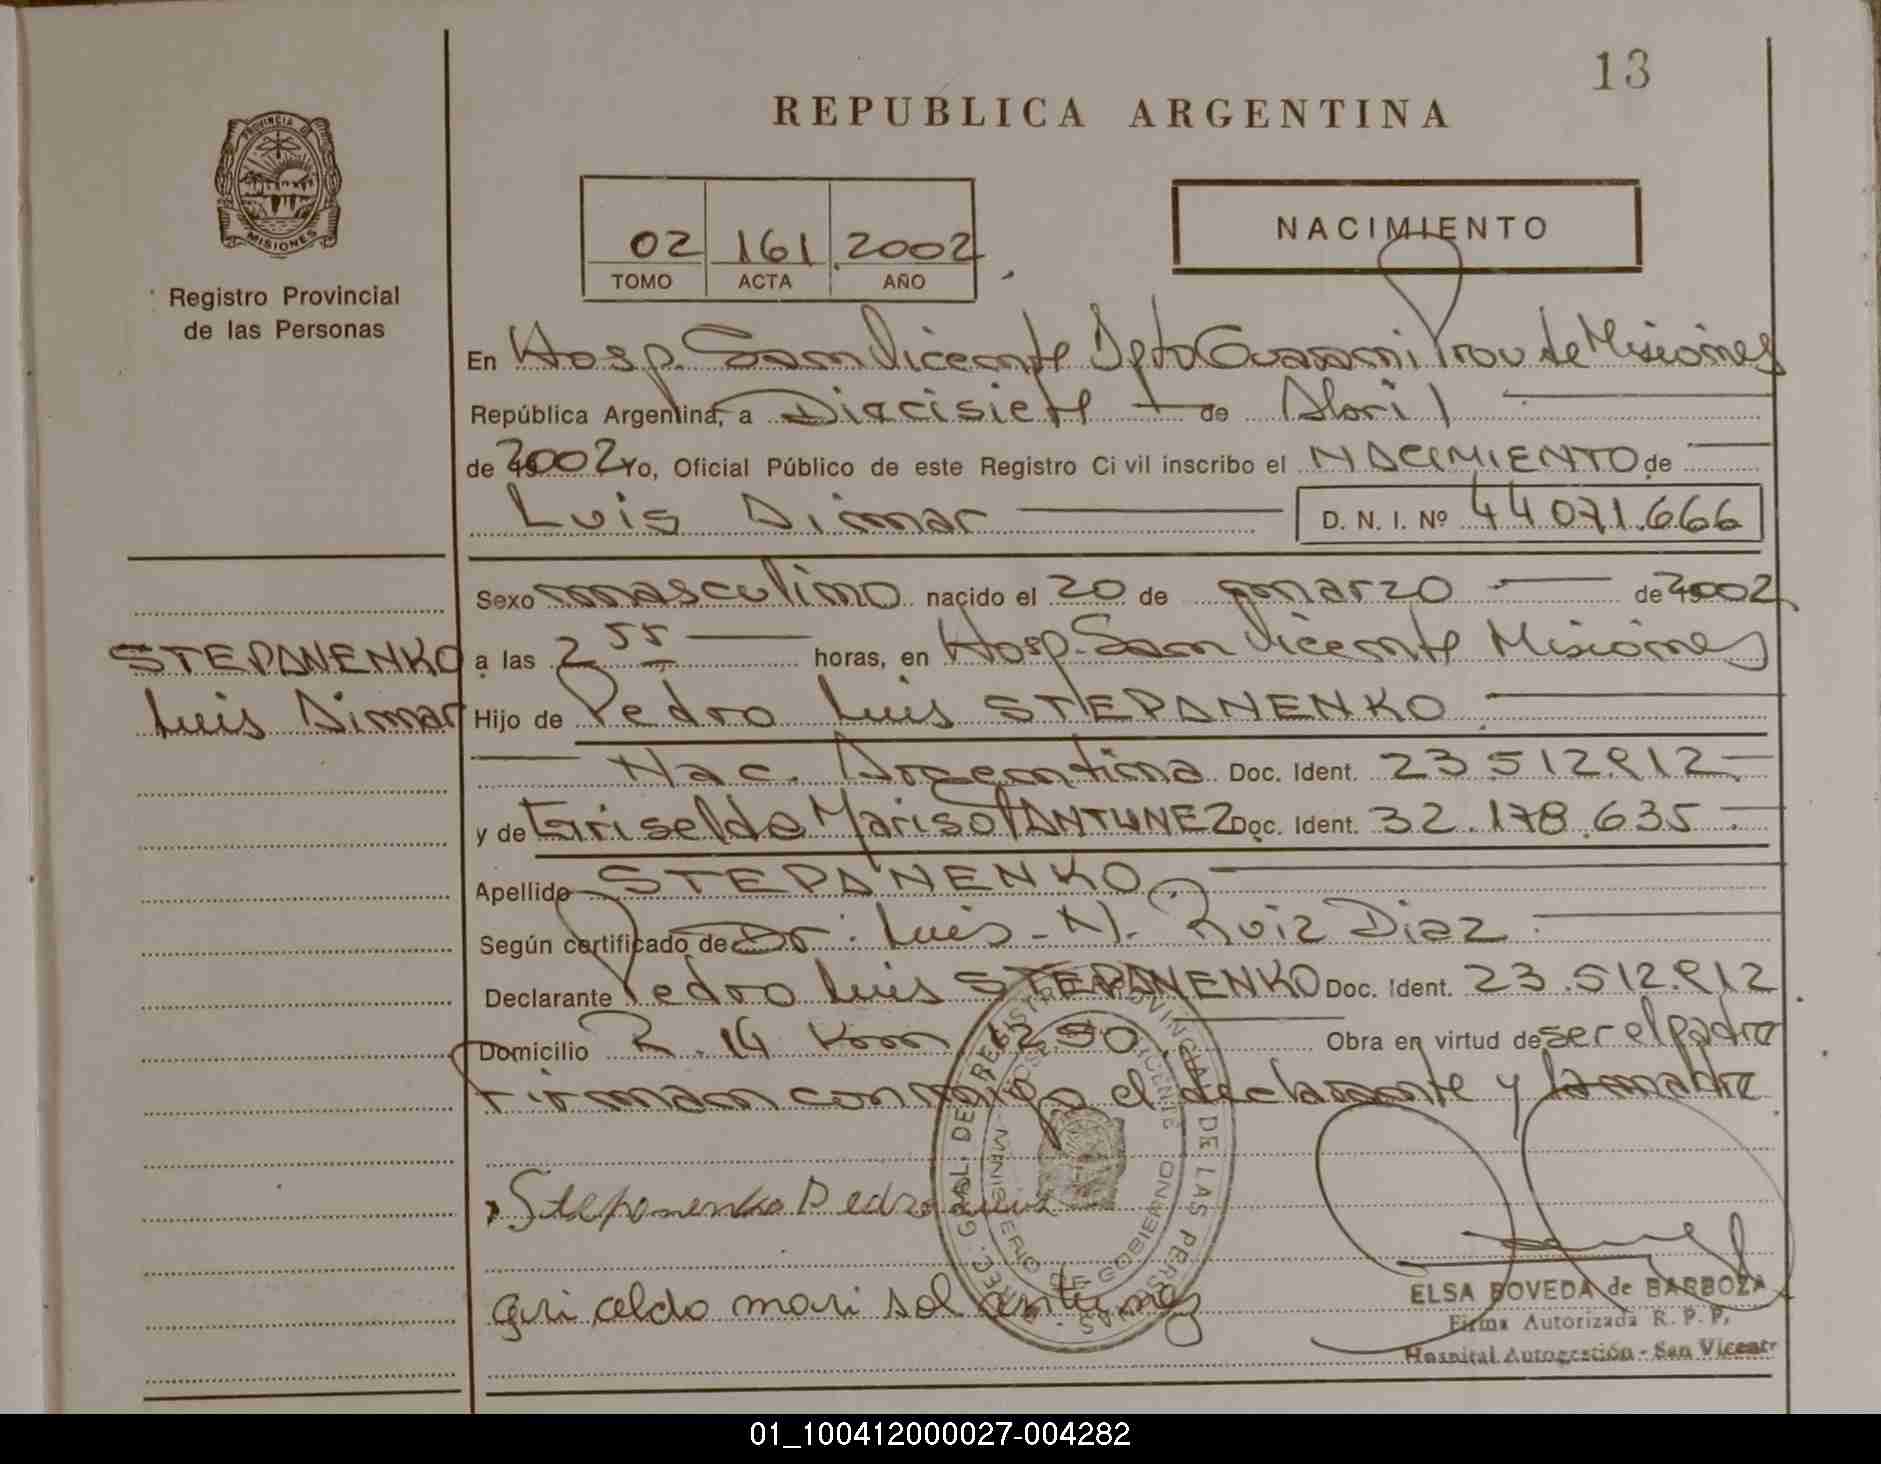 13
REPUBLICA ARGENTINA
PROVINCIA DE
MISIONES
Registro Provincial
de las Personas
02 161 2002
TOMO ACTA AÑO
NACIMIENTO
En Hosp. San Vicente Dpto Guarani Prov de Misiones
República Argentina, a Diecisiete de Abril
de 2002 Yo, Oficial Público de este Registro Civil inscribo el NACIMIENTO de
Luis Dimar D. N. I. Nº 44071.666
Sexo masculino nacido el 20 de marzo de 2002
STEPANENKO
Luis Dimar
a las 2 55 horas, en Hosp. San Vicente Misiones
Hijo de Pedro Luis STEPANENKO
Nac. Argentina Doc. Ident. 23.512.912
y de Griselda Marisol ANTUNEZ Doc. Ident. 32.178.635
Apellido STEPANENKO
Según certificado de Dr. Luis - N. Ruiz Diaz
Declarante Pedro Luis STEPANENKO Doc. Ident. 23.512.912
Domicilio R. 14 Km 1250 Obra en virtud de ser el padre
Firman conmigo el declarante y la madre
Stepanenko Pedro Luis
griselda mari sol antunez
DIREC. GRAL. DE REGISTRO PROVINCIAL DE LAS PERSONAS
MINISTERIO DE GOBIERNO
ELSA BOVEDA de BARBOZA
Firma Autorizada R. P. P.
Hospital Autogestión - San Vicente
01_100412000027-004282